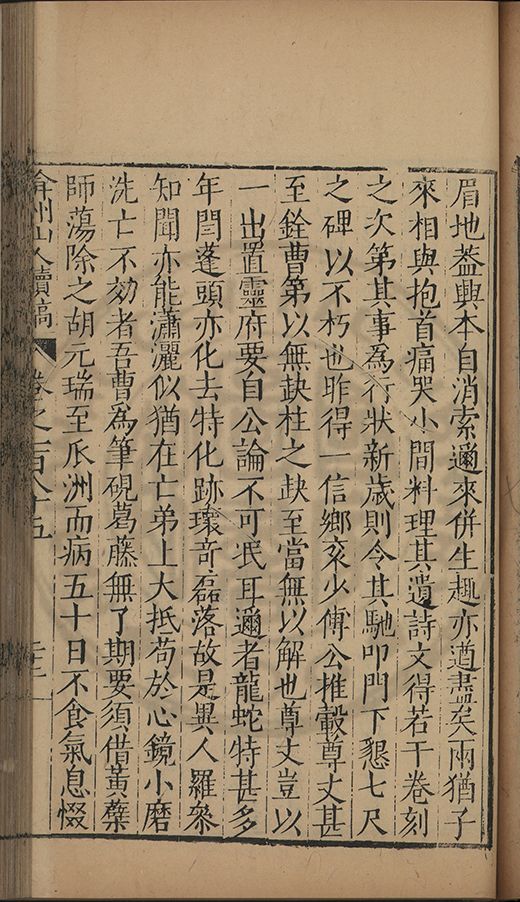 眉地蓋興本自消索邇來併生趣亦遒盡矣兩猶子
來相與抱首痛哭小間料理其遺詩文得若干卷刻
之次第其事為行狀新歲則令其馳叩門下懇七尺
之碑以不朽也昨得一信鄉衮少傅公推轂尊丈甚
至銓曹第以無缺柱之缺至當無以解也尊丈豈以
一出置靈府要自公論不可泯耳邇者龍蛇特甚多
年閆蓬頭亦化去特化跡瓌奇磊落故是異人羅叅
知聞亦能瀟灑似猶在亡弟上大抵苟於心鏡小磨
洗亡不効者吾曹為筆硯葛藤無了期要須借黃蘗
師蕩除之胡元瑞至瓜洲而病五十日不食氣息惙
弇州山人續稿 卷之一百八十五